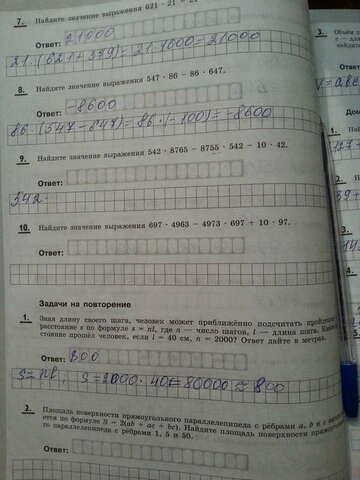 7. Найдите значение выражения 621 · 21
Ответ: 21000
21·(621+379)=21·1000=21000
8. Найдите значение выражения 547 · 86 – 86 · 647.
Ответ: -8600
86·(547-647)=86·(-100)=-8600
9. Найдите значение выражения 542 · 8765 – 8755 · 542 – 10 · 42.
Ответ:
542·
10. Найдите значение выражения 697 · 4963 – 4973 · 697 + 10 · 97.
Ответ:
Задачи на повторение
1. Зная длину своего шага, человек может приближённо подсчитать
расстояние s по формуле s = nl, где n — число шагов, l — длина шага.
стояние прошёл человек, если l = 40 см, n = 2000? Ответ дайте в метрах.
Ответ: 800
S=nl. S=2000·40=80000=800
2. Площадь поверхности прямоугольного параллелепипеда с рёбрами a, b и c
ется по формуле S = 2(ab + ac + bc). Найдите площадь поверхности
го параллелепипеда с рёбрами 1, 5 и 50.
Ответ:
3. Объём